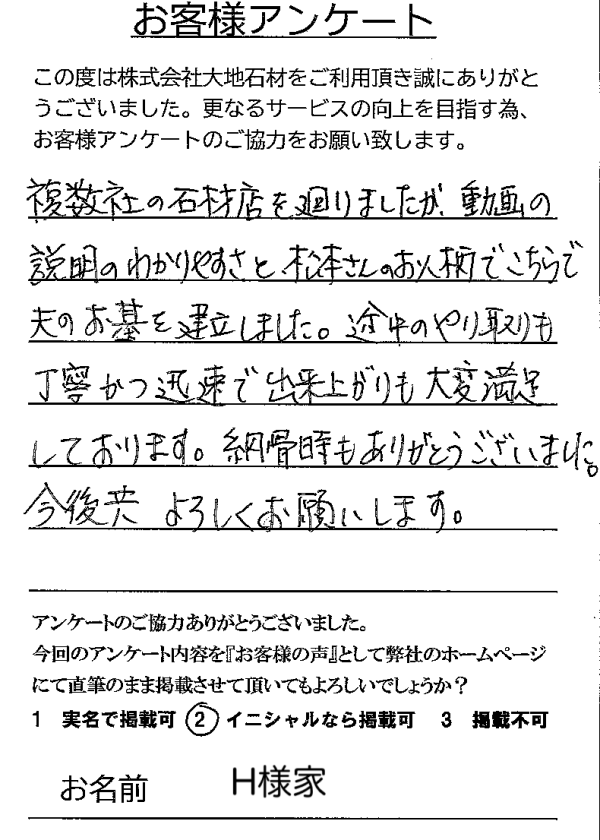 お客様アンケート
この度は株式会社大地石材をご利用頂き誠にありがと
うございました。更なるサービスの向上を目指す為、
お客様アンケートのご協力をお願い致します。
複数社の石材店を廻りましたが、動画の
説明のわかりやすさと、松本さんのお人柄でこちらで
夫のお墓を建立しました。途中のやり取りも
丁寧かつ迅速で出来上がりも大変満足
しております。納骨時もありがとうございました。
今後共よろしくお願いします。
アンケートのご協力ありがとうございました。
今回のアンケート内容を『お客様の声』として弊社のホームページ
にて直筆のまま掲載させて頂いてもよろしいでしょうか？
1 実名で掲載可 2 イニシャルなら掲載可 3 掲載不可
お名前 H様家